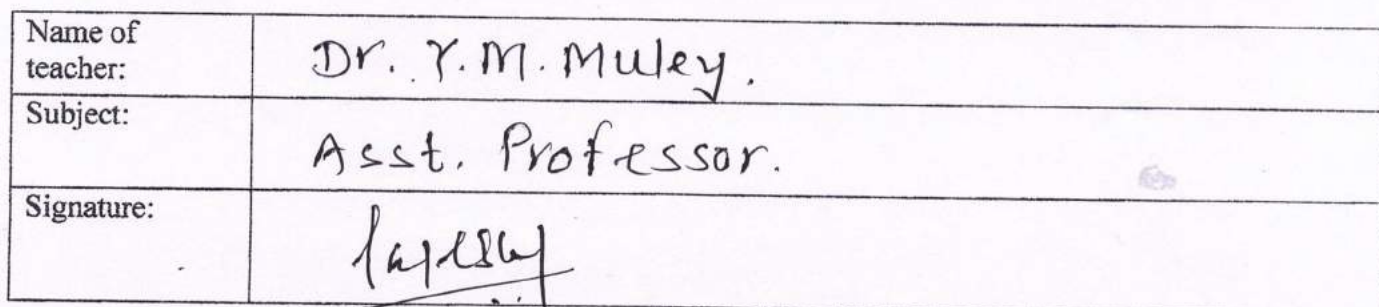 Name of
teacher:
Dr. Y.M. Muley.
Subject:
Asst. Professor.
Signature: